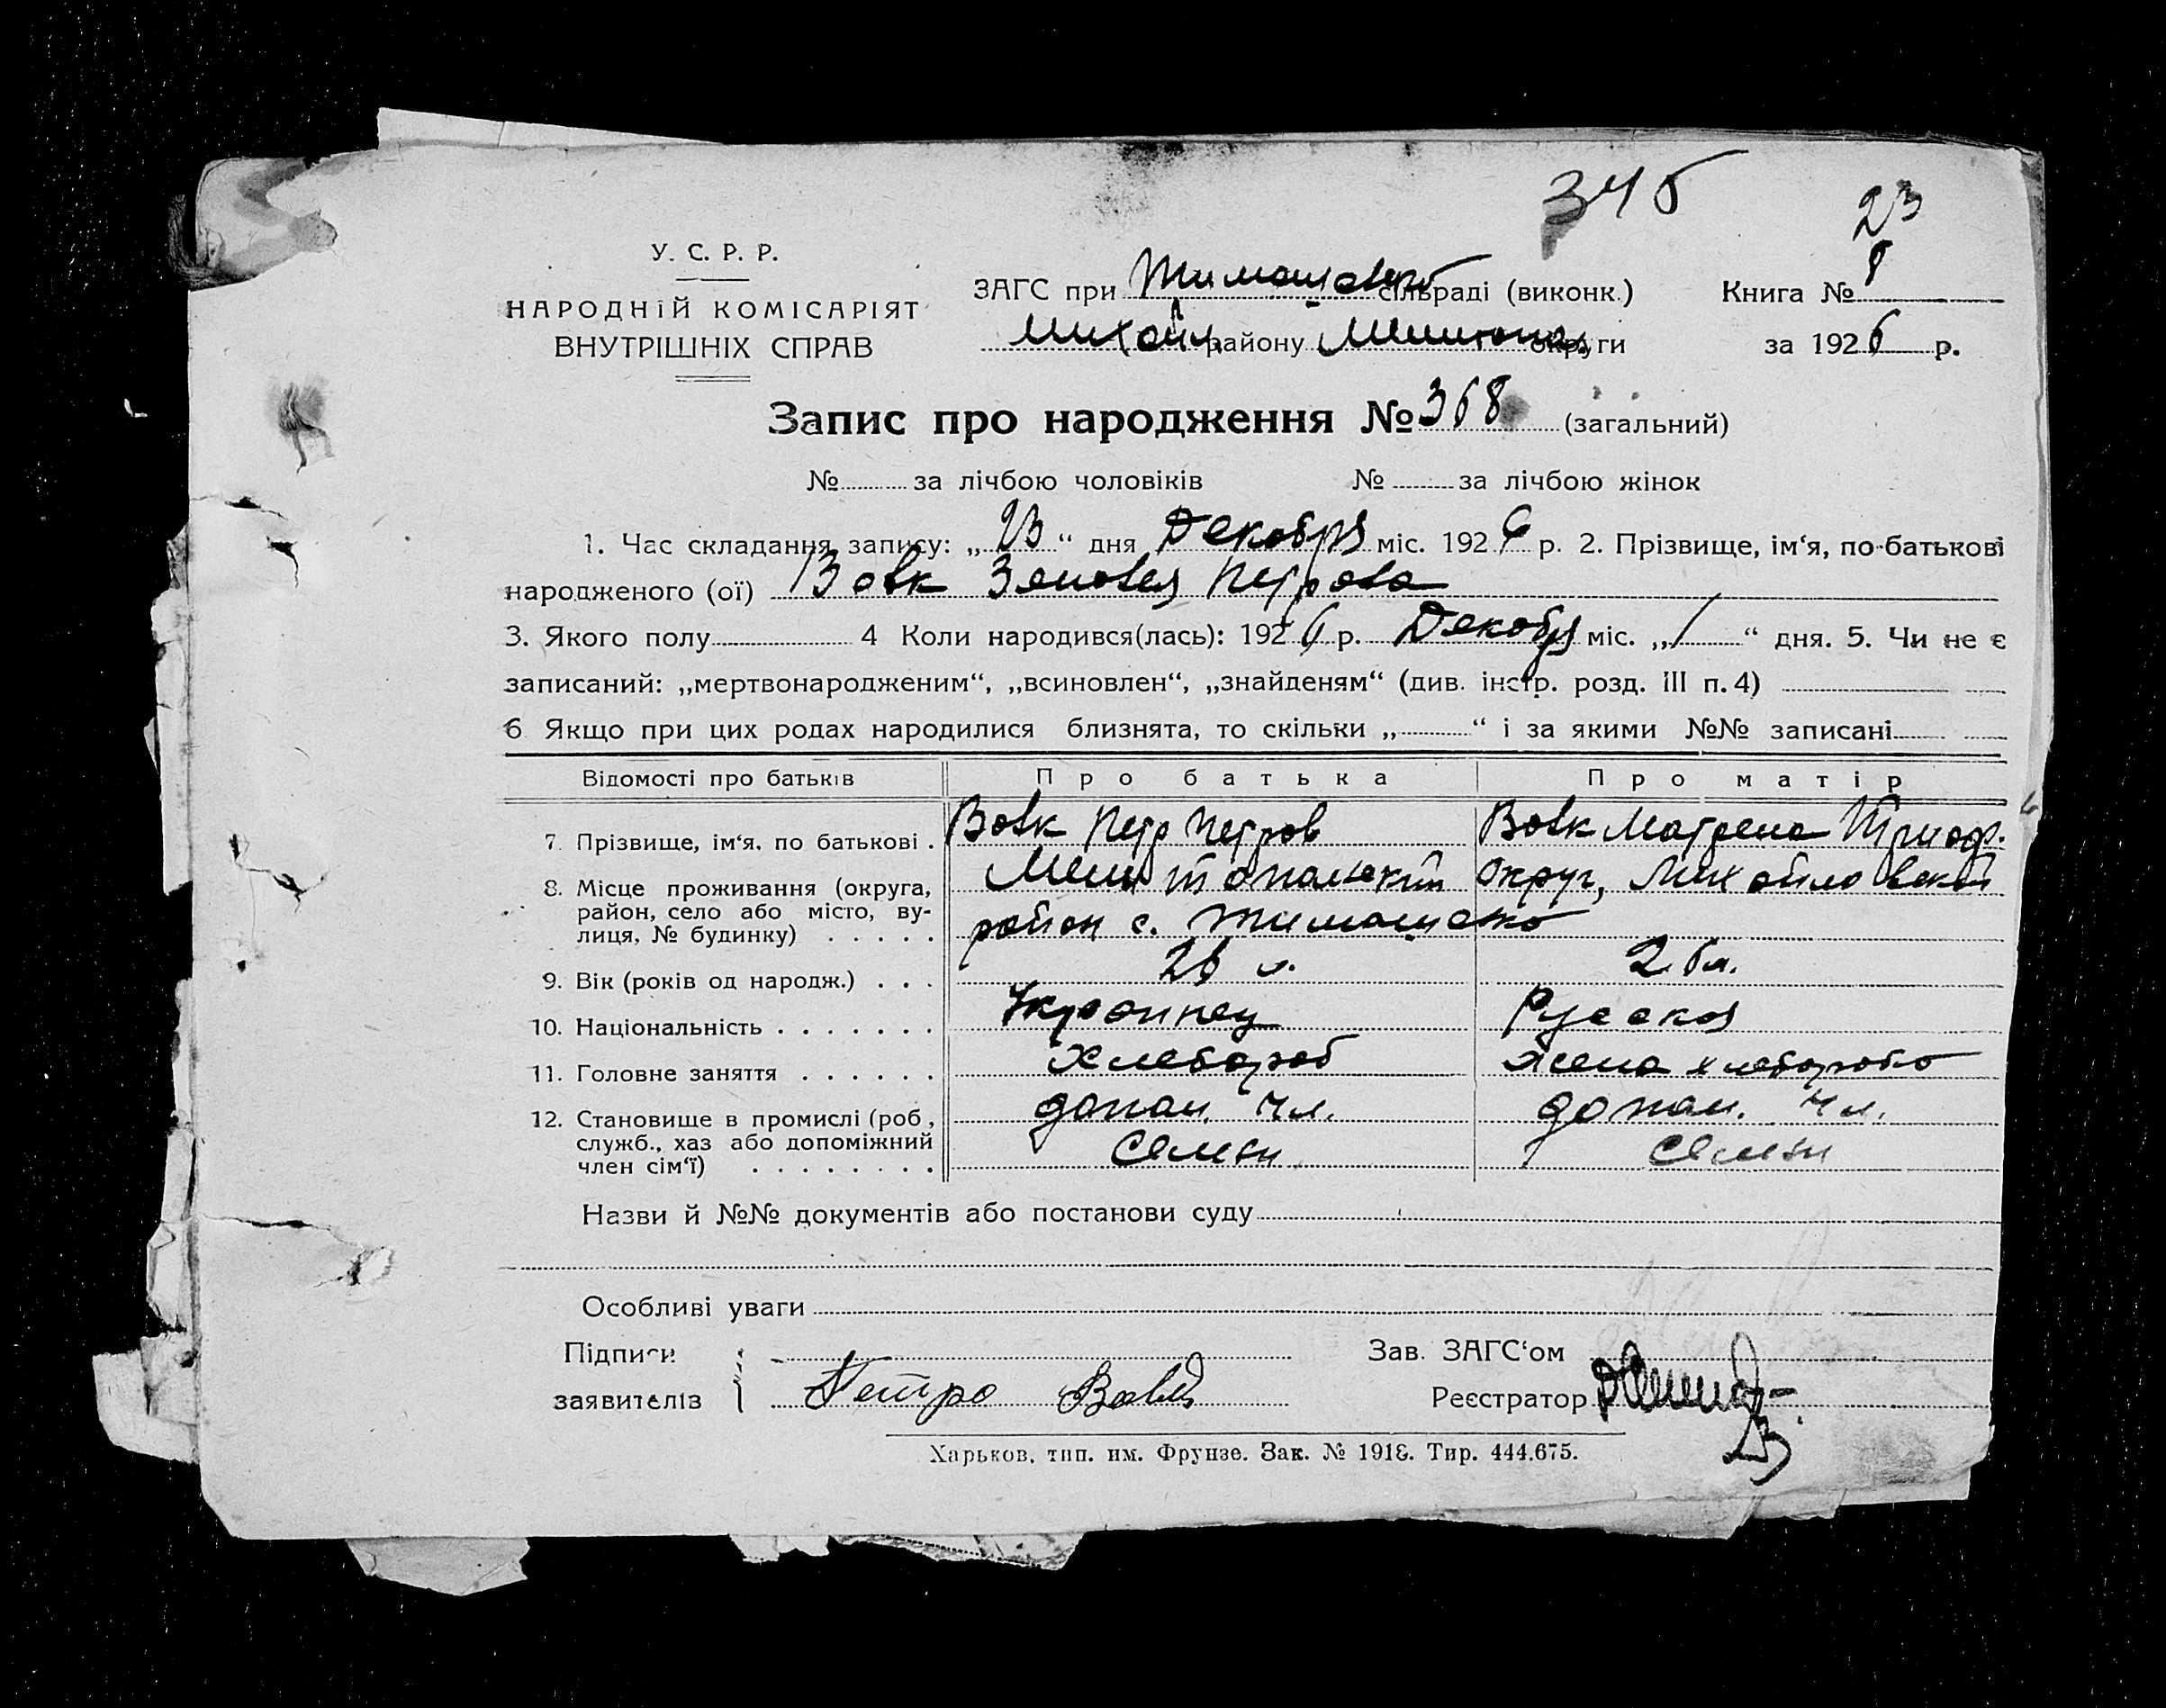 346
23
У. С. Р. Р.
НАРОДНІЙ КОМІСАРІЯТ
ВНУТРІШНІХ СПРАВ
ЗАГС при Тимошевко сільраді (виконк.)
Михайл району Мелитопол округи
Книга № 8
за 1926 р.
Запис про народження № 368 (загальний)
№ за лічбою чоловіків № за лічбою жінок
1. Час складання запису: „23“ дня Декобря міс. 1926 р. 2. Прізвище, ім‘я, по-батькові
народженого (ої) Вовк Зеновея Петрова
3. Якого полу 4 Коли народився(лась): 1926 р. Декобря міс. „1“ дня. 5. Чи не є
записаний: „мертвонародженим“, „всиновлен“, „знайденям“ (див. інстр. розд. III п. 4)
6 Якщо при цих родах народилися близнята, то скільки „ “ і за якими №№ записані
Відомості про батьків Про батька Про матір
7. Прізвище, ім‘я, по батькові . Вовк Петр Петров Вовк Матрена
8. Місце проживання (округа, Мелитопольский Округ, Михойловской
район, село або місто, ву- район с. Тимошевко
лиця, № будинку) . . . . .
9. Вік (років од народж.) . . . 26 л. 26 л.
10. Національність . . . . . . . Украинец Русская
11. Головне заняття . . . . . . Хлебороб жена хлебороба
12. Становище в промислі (роб., допом. чл. допом. чл.
служб., хаз або допоміжний семьи семьи
член сім‘ї) . . . . . . . .
Назви й №№ документів або постанови суду
Особливі уваги
Підписи
заявителів Петро Вовк
Зав. ЗАГС‘ом
Реєстратор
Харьков, тип. им. Фрунзе. Зак. № 1918. Тир. 444.675.